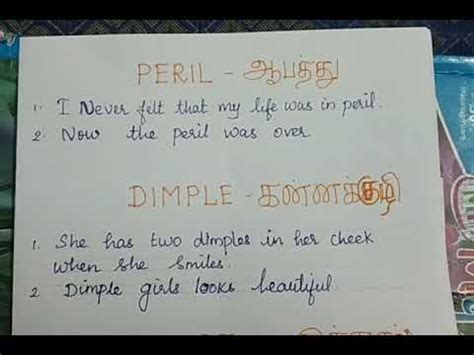 PERIL - ஆபத்து
1. I Never felt that my life was in peril.
2. Now the peril was over.
DIMPLE - கன்னக்குழி
1. She has two dimples in her cheek
when she smiles.
2 Dimple girls looks beautiful.